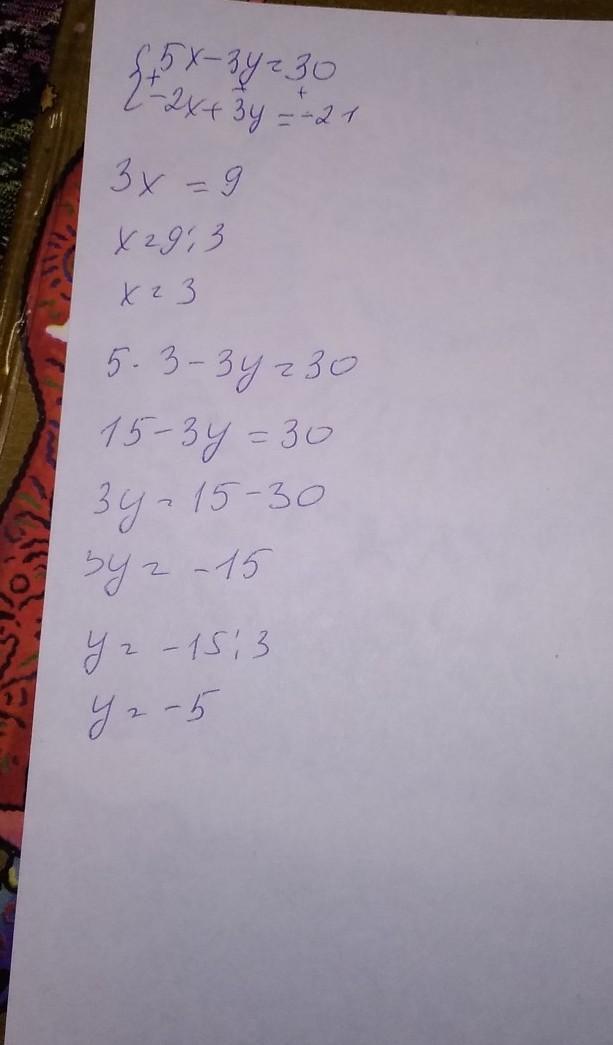 5x-3y=30
-2x+3y=-21
3x = 9
x=9:3
x=3
5·3-3y=30
15-3y=30
3y=15-30
3y=-15
y=-15:3
y=-5